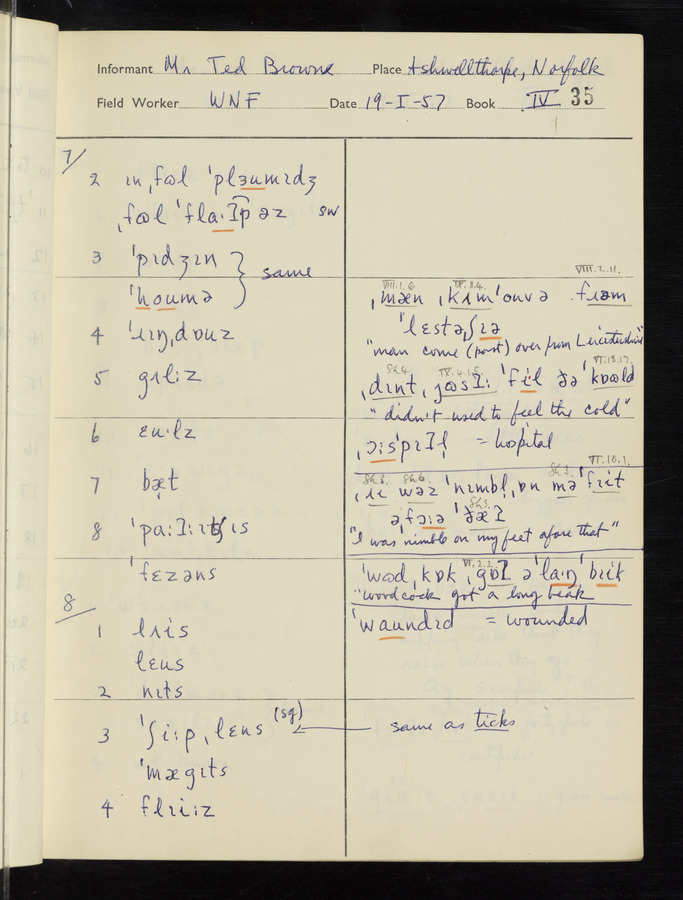 Informant Mr Ted Browne Place Ashwellthorpe, Norfolk
Field Worker WNF Date 19-I-57 Book IV 35
7/
2 ɪn ˌfʊl ˈplɜumɪdʒ
ˌfʊl ˈflaˑɪʔp əz sw
3 ˈpɪdʒɪn } same
ˈhoumə
4 ˈɹɪŋˌdʊuz
5 gʌliːz
6 ɛuˑlz
7 bæt
8 ˈpaːɪːɪtʃɪs
ˈfɛzəns
8/
1 lʌis
lɛus
2 nɪts
3 ˈʃiːp ˌlɛus (sg)
ˈmægɪts
4 flɪiːz
VIII.2.11.
VIII.1.6
ˌmæn ˌkʌmˈouvə fɹəm
ˈlɛstəˌʃɪə
"man come (past) over from Leicestershire"
VI.13.17.
ˌdɪnt ˌjʊsɪː ˈfiːl ðə ˈkɒʊld
"didn't used to feel the cold"
ˌɔːsˈpɪʔl̩ = hospital
VI.10.1.
wəz ˈnɪmbl ˌɒn mə ˈfɪit
əˌfɔːə ˈðæʔ
"I was nimble on my feet afore that"
ˈwʊdˌkɒk ˌgɒʔ ə ˈlaˑŋ ˈbɪik
"woodcock got a long beak
ˈwaundɪd = wounded
same as ticks